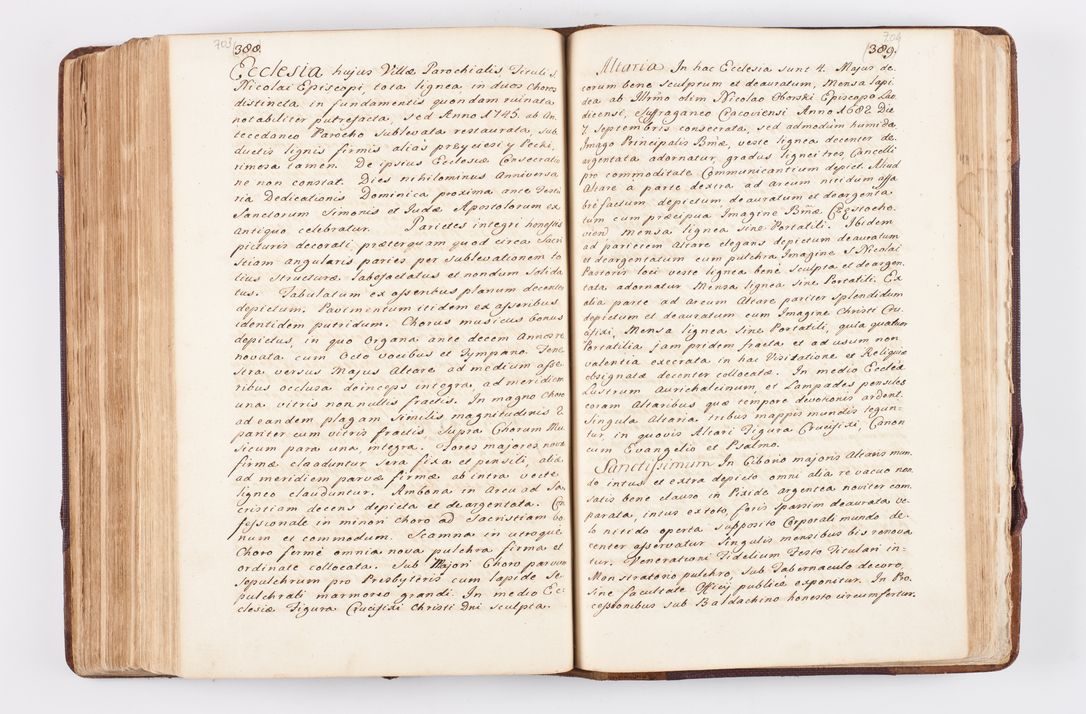 703
388.
Ecclesia hujus Villæ Parochialis, Tituli S.
Nicolai Episcopi, tota lignea, in duos Choros
distincta in fundamentis quondam ruinata
notabiliter putrefacta, sed Anno 1745. ab An-
tecedaneo Parocho sublevata restaurata, sub
ductis lignis firmis alias przyciesi y Pechi,
rimosa tamen. De ipsius Ecclesiæ Consecratio
ne non constat. Dies nihilominus Anniversa
ria Dedicationis Dominica proxima ante Festũ
Sanctorum Simonis et Judæ Apostolorum ex
antiquo celebratur. Parietes integri honestis
picturis decorati, præterquam quod circa Sacri
stiam angularis paries per sublevationem to
tius structuræ labefactatus et nondum solida
tus. Tabulatum ex asseribus planum decenter
depictum. Pavimentum itidem ex asseribus
identidem putridum. Chorus musicus bonus
depictus, in quo Organa ante decem Annos re
novata cum Octo vocibus et Tympano Fene
stra versus Majus Altare ad medium asse
ribus occlusa deinceps integra, ad meridiem
una vitris non nullis fractis. In magno Choro
ad eandem plagam similis magnitudinis 2.
pariter cum vitris fractis. Supra Chorum Mu
sicum parva una, integra. Fores majores novæ
firmæ clauduntur sera fixa et pensili, aliæ
ad meridiem parvæ firmæ ab intra vecte
ligneo clauduntur. Ambona in Arcu ad Sa
cristiam decens depicta et deargentata. Con
fessionale in minori Choro ad Sacristiam bo
num et commodum. Scamna in utroque
Choro fermè omnia nova pulchra firma et
ordinate collocata. Sub Majori Choro parvum
sepulchrum pro Presbyteris cum lapide se
pulchrali marmoreo grandi. In medio Ec
clesiæ Figura Crucifixi Christi Dni sculpta.
704
389.
Altaria In hac Ecclesia sunt 4. Majus de
corum bene sculptum et deauratum, Mensa lapi
dea ab Illr̃mo olim Nicolao Oborski Episcopo Lao
dicensi, Suffraganeo Cracoviensi Anno 1682 Die
7. Septembris consecrata, sed admodum humida
Imago Principalis Bm̃æ, veste lignea decenter de
argentata adornatur, gradus lignei tres Cancelli
pro commoditate Communicantium depict. Aliud
Altare a parte dextra ad arcum nitidum affa
brè factum depictum deauratum et deargenta
tum cum præcipua Imagine Bm̃æ Częstocho
vien: mensa lignea sine Portatili. Ibidem
ad parietem Altare elegans depictum deauratum
et deargentatum cum pulchra Imagine S. Nicolai
Pastoris loci veste lignea benè sculpta et deargen
tata adornatur Mensa lignea sine Portatili. Ex
alia parte ad arcum Altare pariter splendidum
depictum et deauratum cum Imagine Christi Cru
cifixi, Mensa lignea sine Portatili, quia quatuor
Portatilia jam pridem fracta et ad usum non
valentia execrata in hac Visitatione et Reliquiæ
obsignatæ decenter collocatæ. In medio Ecclesiæ
Lustrum Aurichalcinum et Lampades pensiles
coram Altaribus quæ tempore devotionis ardent.
Singula Altaria tribus mappis mundis tegun-
tur, in quovis Altari Figura Crucifixi, Canon
cum Evangelio et Psalmo.
Sanctissimum In Ciborio majoris Altaris mun
do intus et extra depicto omni alia re vacuo non
satis bene clauso in Pixide argentea noviter com
parata, intus ex toto, foris sparsim deaurata ve
lo nitido operta supposito Corporali mundo de
center asservatur singulis mensibus bis renova
tur. Venerationi Fidelium Festo Titulari in-
Monstratorio pulchro, sub Tabernaculo decoro
sine facultate Officij publicè exponitur. In Pro
cessionibus sub Baldachino honesto circumfertur.